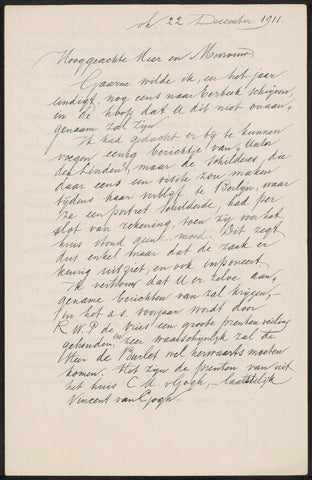 vh. 22 December 1911.
Hooggeachte Heer en Mevrouw
Gaarne wilde ik, er het jaar
eindigt, nog eens naar Eerbeek schrijven,
in de hoop dat U dit niet onaan-
genaam zal zijn.
Ik had gedacht er bij te kunnen
voegen eenig berichtje van „Unter
den Linden", maar de Schilderes, die
daar eens een visite zou maken
tijdens haar verblijf te Berlijn, waar
ze een portret schilderde, had per
slot van rekening, toen zij voor het
huis stond geen moed. Dit zegt
dus enkel maar dat de zaak er
keurig uitziet, en ook imponeert
Ik vertrouw dat U er zelve aan-
gename berichten van zal krijgen,-
in het a.s. voorjaar wordt door
R. W. P de Vries een groote prentenveiling
gehouden, en zeer waarschijnlijk zal de
Heer de Burlet wel herwaarts moeten
komen. Het zijn de prenten van uit
het huis C. M. v Gogh, - laatstelijk
Vincent van Gogh.